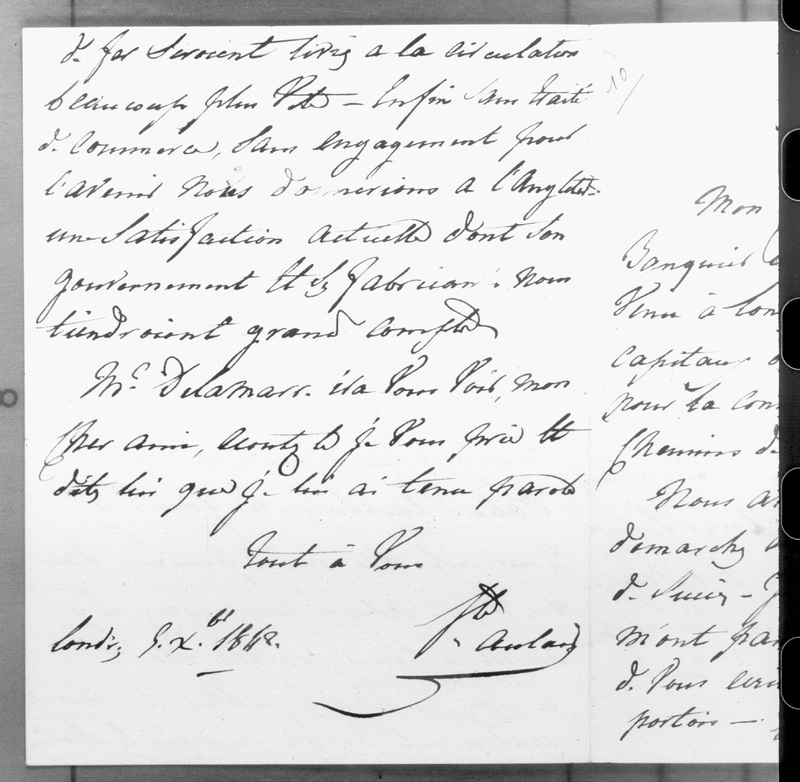 de fer seroient livrés a la circulation
beaucoup plus vite — Enfin sans traité
de commerce, sans engagement pour
l'avenir nous donnerions a l'Angleterre
une satisfaction actuelle dont son
gouvernement et ses fabricans nous
tiendroient grand compte
Mr. Delamarre ira vous voir, mon
cher ami, écoutez le je vous prie et
dites lui que je lui ai tenu parole
tout à vous
Londres 5. X.bre 1842.
10/
Mon
Banquier
venu à Lon
capitaux
pour la con
chemins de
Nous a
demarches
de suivre —
m'ont par
de vous
portois —